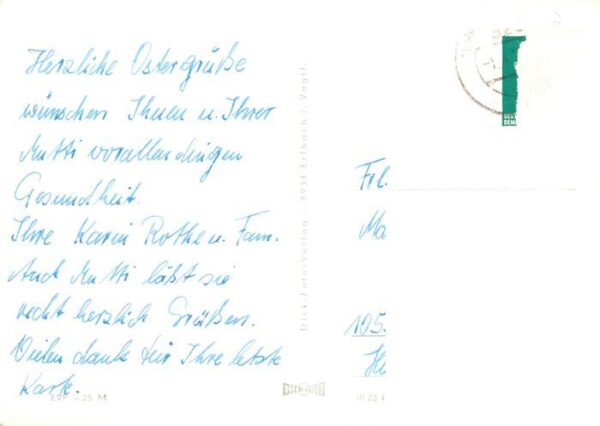 Herzliche Ostergrüße
wünschen Ihnen u. Ihrer
Mutti vorallendingen
Gesundheit.
Ihre Karin Rothe u. Fam.
Auch Mutti läßt sie
recht herzlich Grüßen.
Vielen dank für Ihre letzte
Karte.
EVP -,25 M
Dick-Foto-Verlag - 9934 Erlbach i. Vogtl.
DICK
III 23 4
DEM
Frl.
Ma
105.